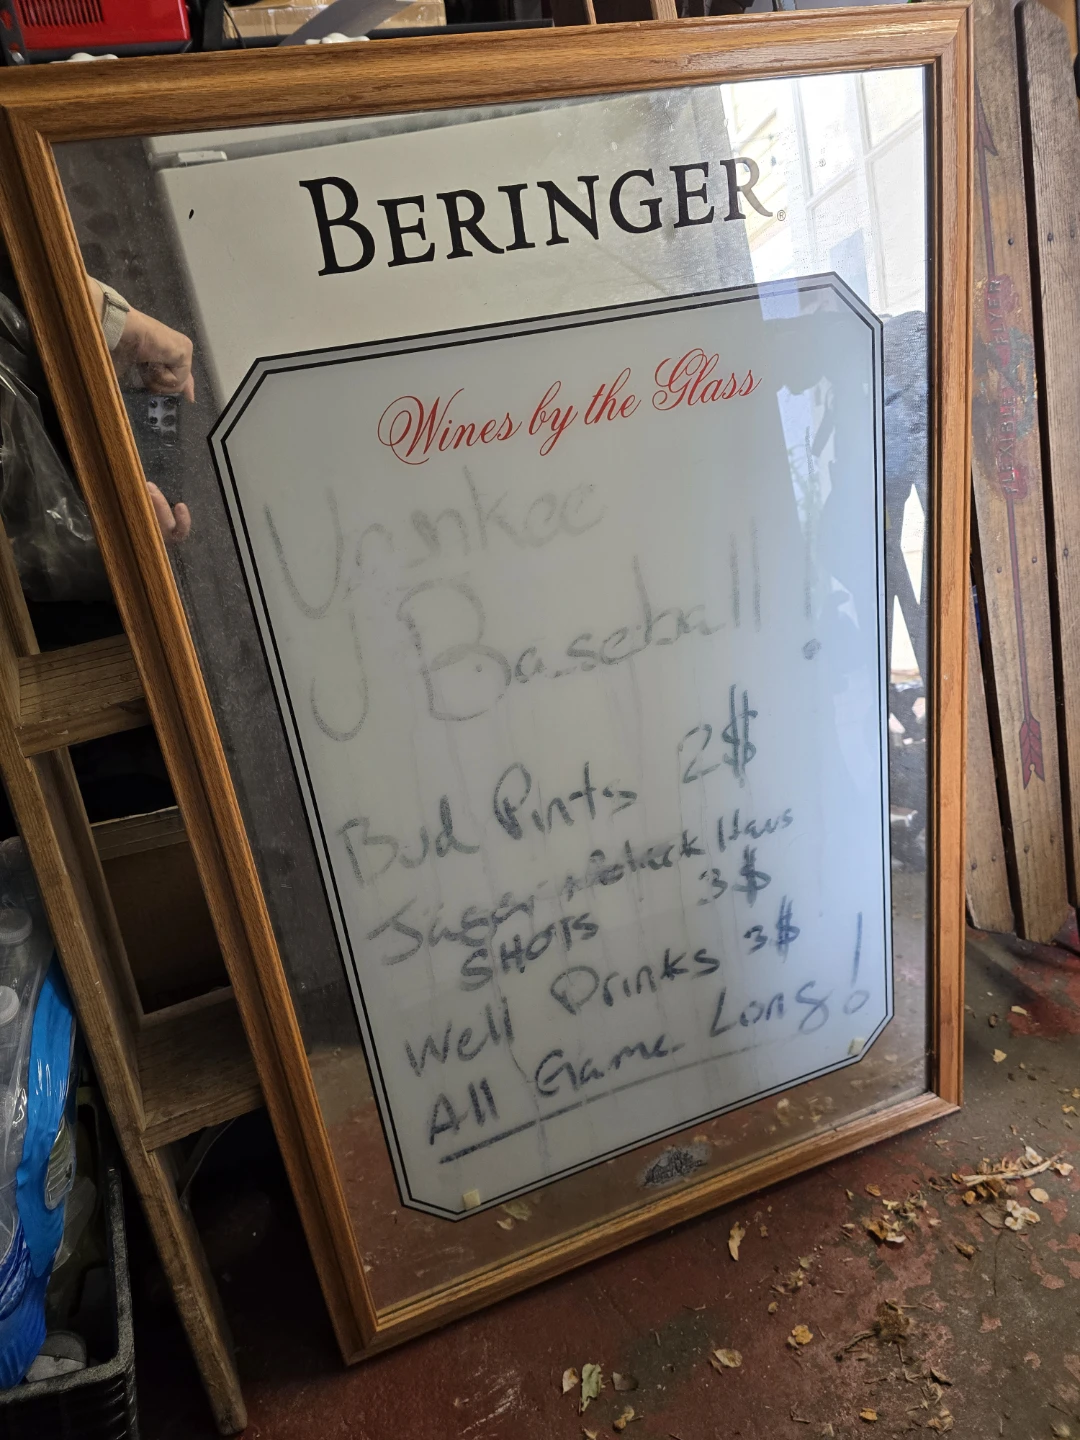 BERINGER®
Wines by the Glass
Yankee
Baseball!
Bud Pints 2$
Jager + Black Haus
SHOTS 3$
Well Drinks 3$
All Game Long!
FLEXIBLE FLYER